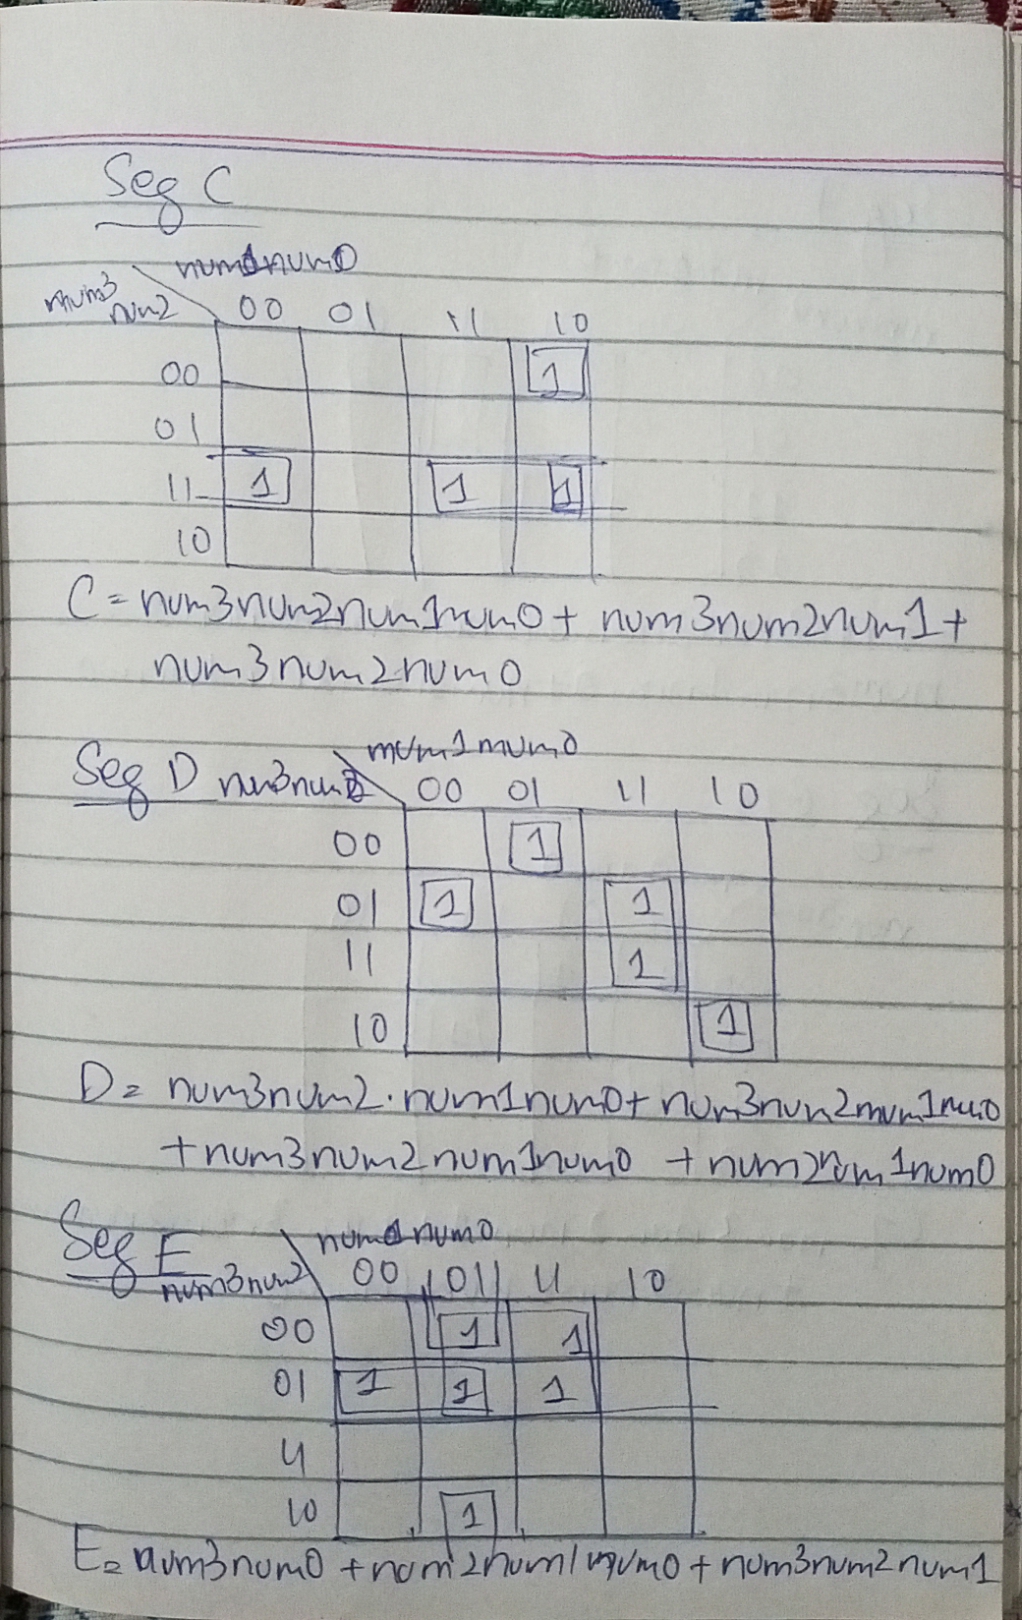 Seg C
num1num0
num3
num2
00 01 11 10
00 1
01
11 1 1 1
10
C = num3num2num1num0 + num3num2num1 +
num3num2num0
Seg D num3num2 num1num0
00 01 11 10
00 1
01 1 1
11 1
10 1
D = num3num2.num1num0 + num3num2num1num0
+ num3num2num1num0 + num2num1num0
Seg E num1num0
num3num2 00 01 11 10
00 1 1
01 1 1 1
11
10 1
E = num3num0 + num2num1num0 + num3num2num1